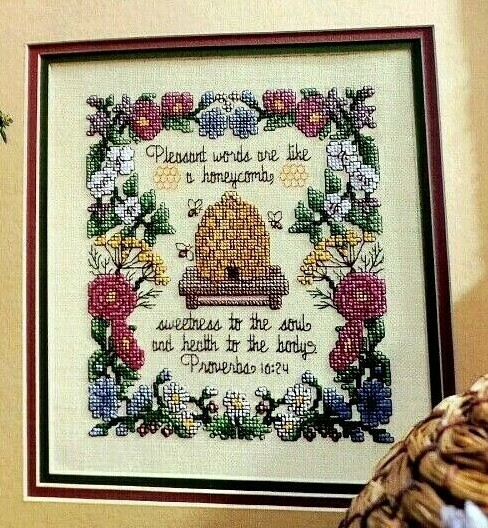 Pleasant words are like
a honeycomb,
sweetness to the soul
and health to the body.
Proverbs 16:24